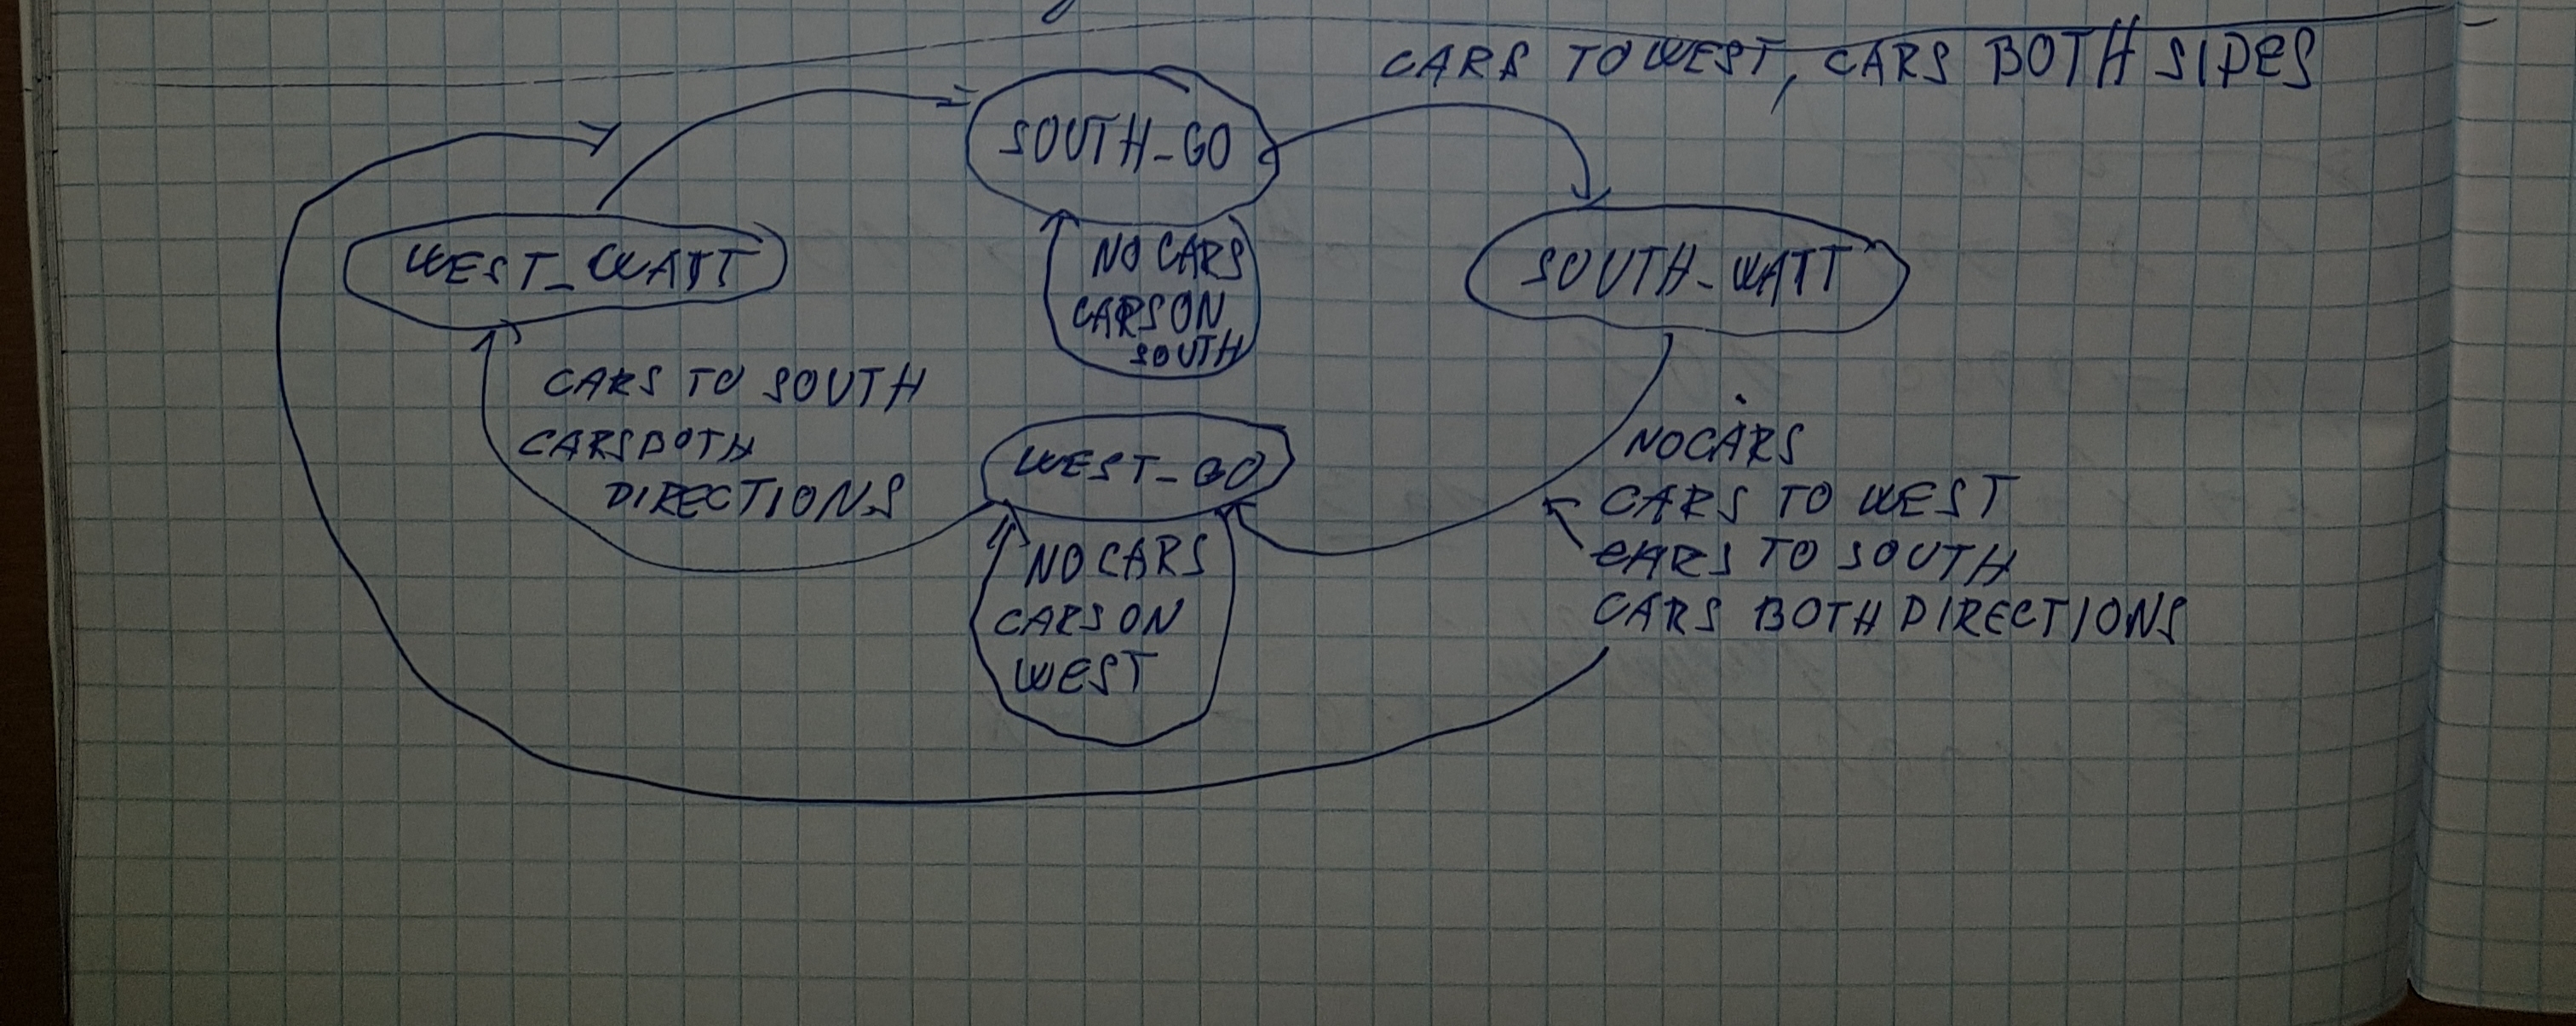 CARS TO WEST, CARS BOTH SIDES
SOUTH_GO
WEST_WAIT
SOUTH_WAIT
NO CARS
CARS ON
SOUTH
CARS TO SOUTH
CARS BOTH
DIRECTIONS
WEST_GO
NO CARS
CARS ON
WEST
NO CARS
CARS TO WEST
CARS TO SOUTH
CARS BOTH DIRECTIONS